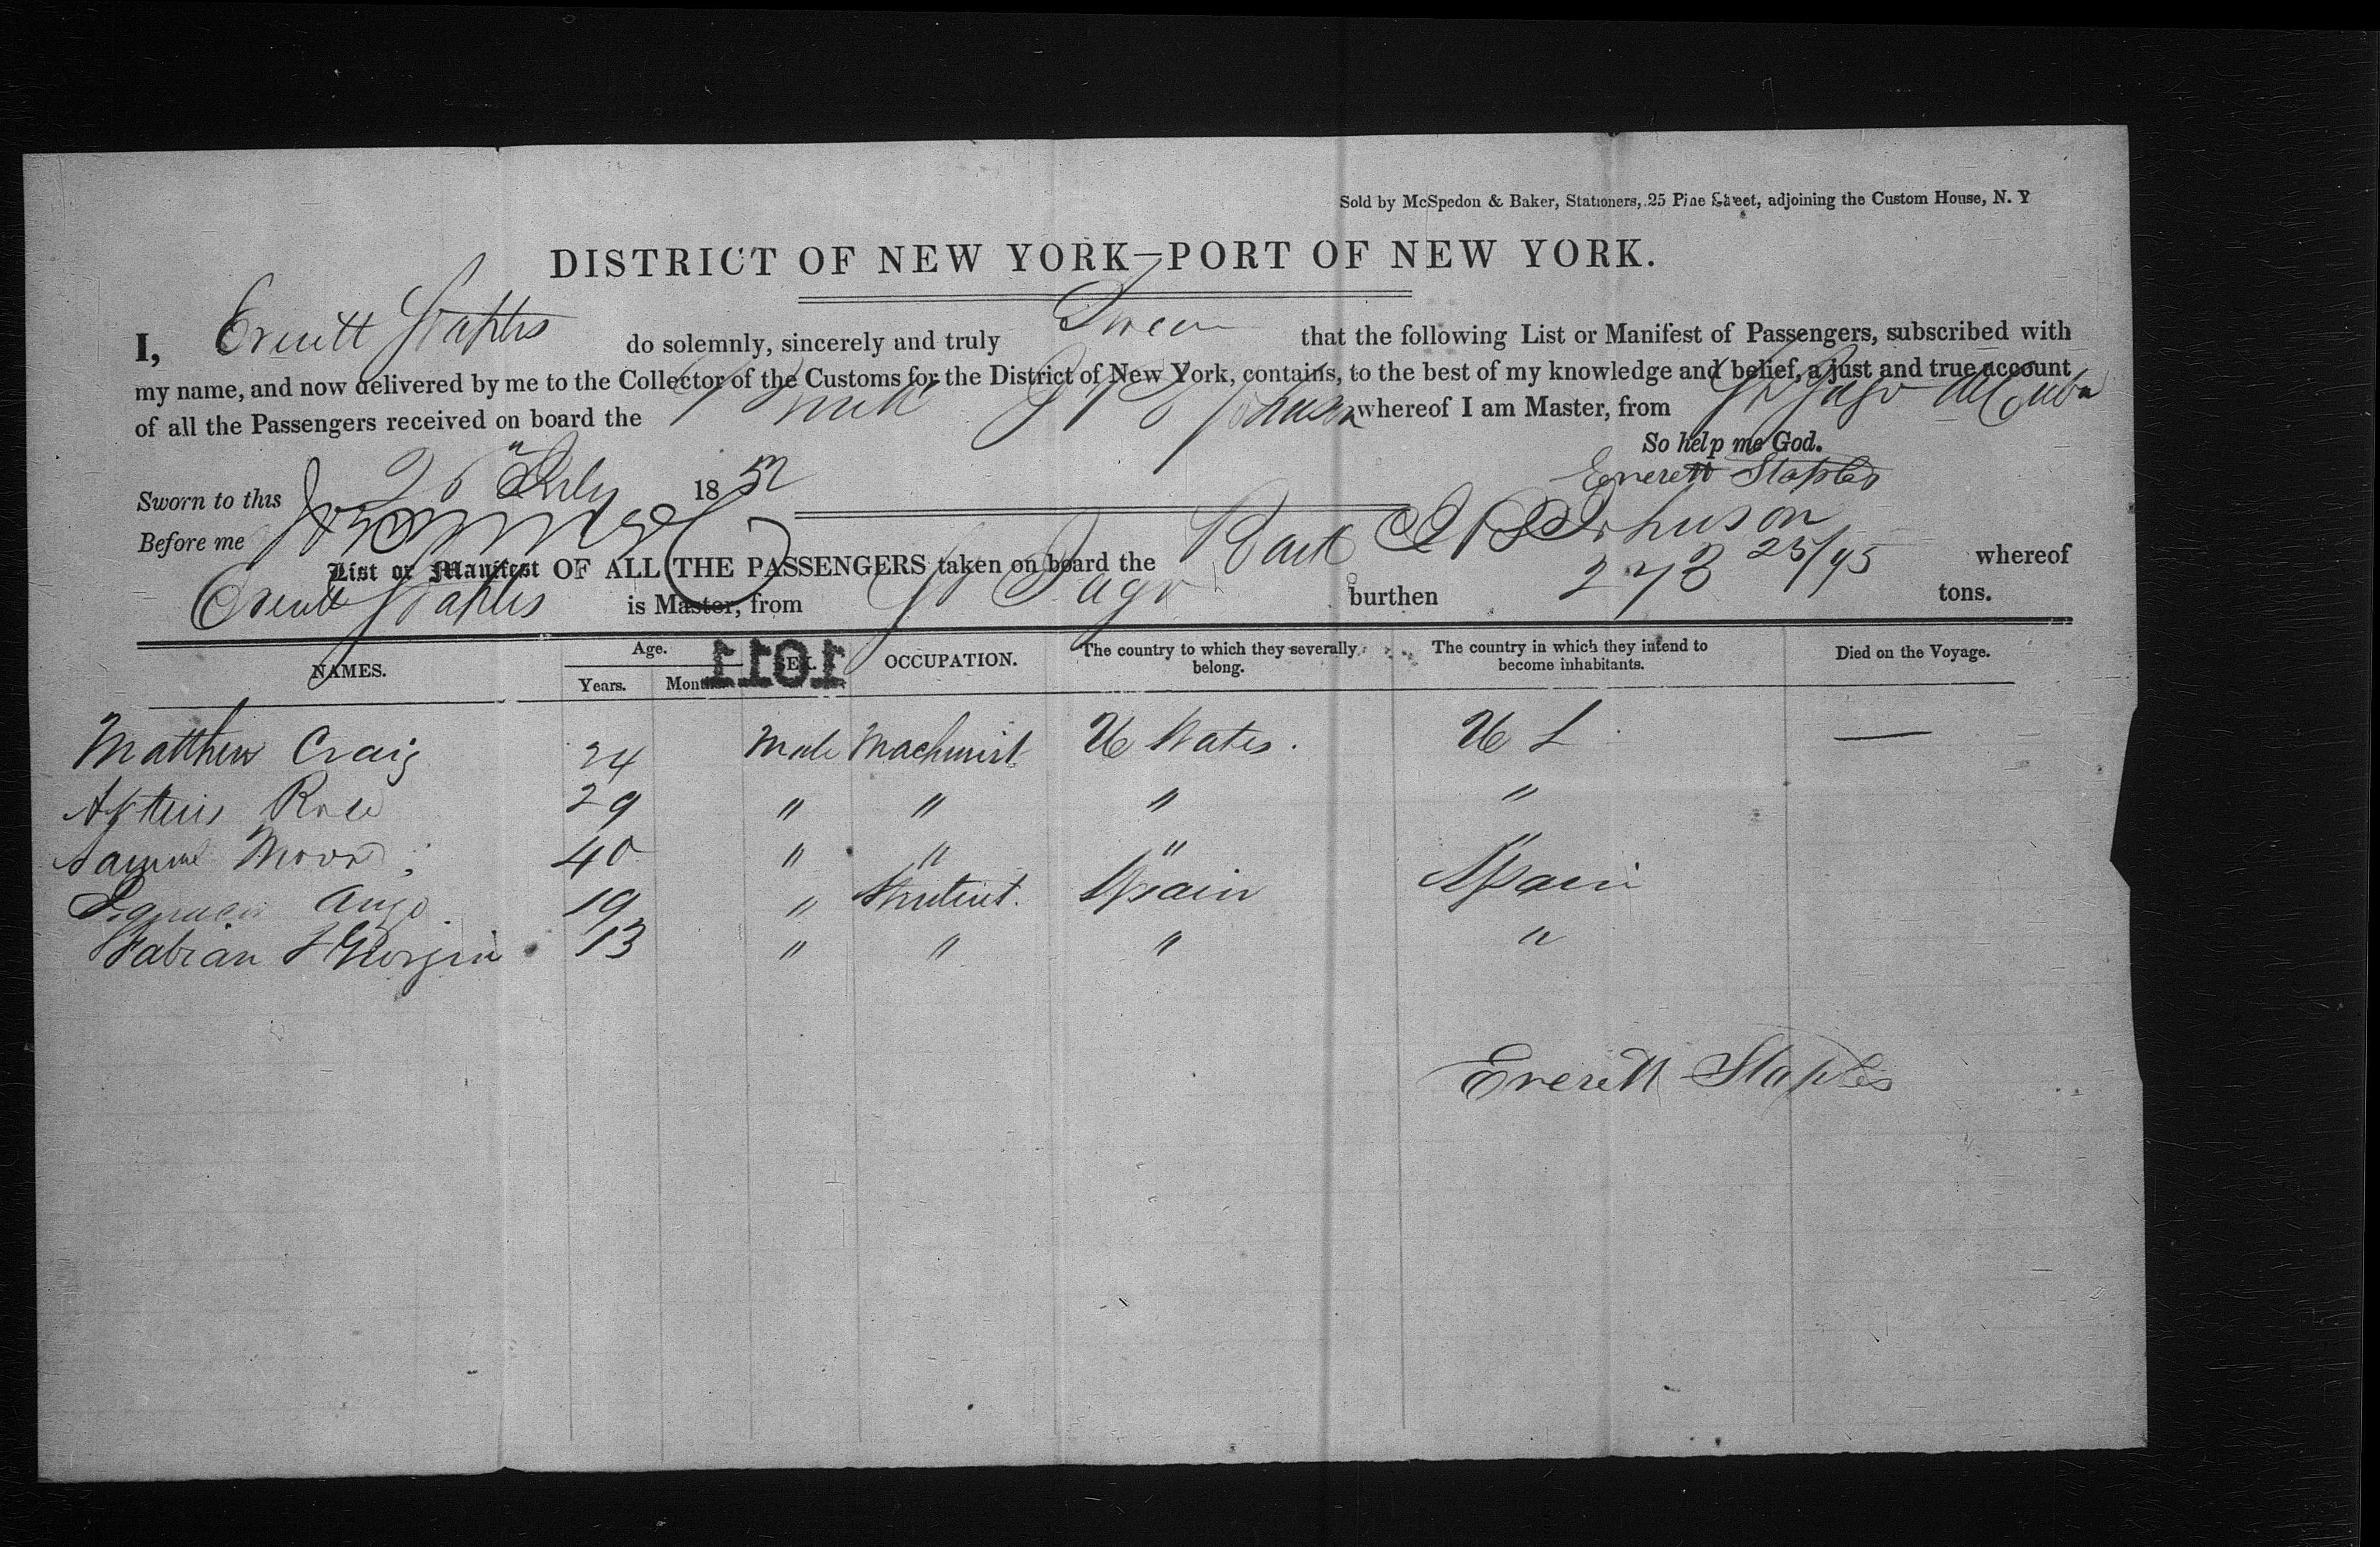 Sold by McSpedon & Baker, Stationers, 25 Pine Street, adjoining the Custom House, N. Y
DISTRICT OF NEW YORK—PORT OF NEW YORK.
I, Everett Staples do solemnly, sincerely and truly Swear that the following List or Manifest of Passengers, subscribed with
my name, and now delivered by me to the Collector of the Customs for the District of New York, contains, to the best of my knowledge and belief, a just and true account
of all the Passengers received on board the Johnson whereof I am Master, from St Jago de Cuba
So help me God.
Everett Staples
Sworn to this 26 " July 1852
Before me
List or Manifest OF ALL THE PASSENGERS taken on board the Bark Johnson whereof
Everett Staples is Master, from St Jago burthen 273 25/95 tons.
NAMES. Age. SEX. OCCUPATION. The country to which they severally belong. The country in which they intend to become inhabitants. Died on the Voyage.
Years. Months.
1101
Matthew Craig 24 Male Machinist U States. U S. —
Rose 29 " " " "
Samuel Moore 40 " " " "
19 " Student. Spain Spain
Fabian 13 " " " "
Everett Staples